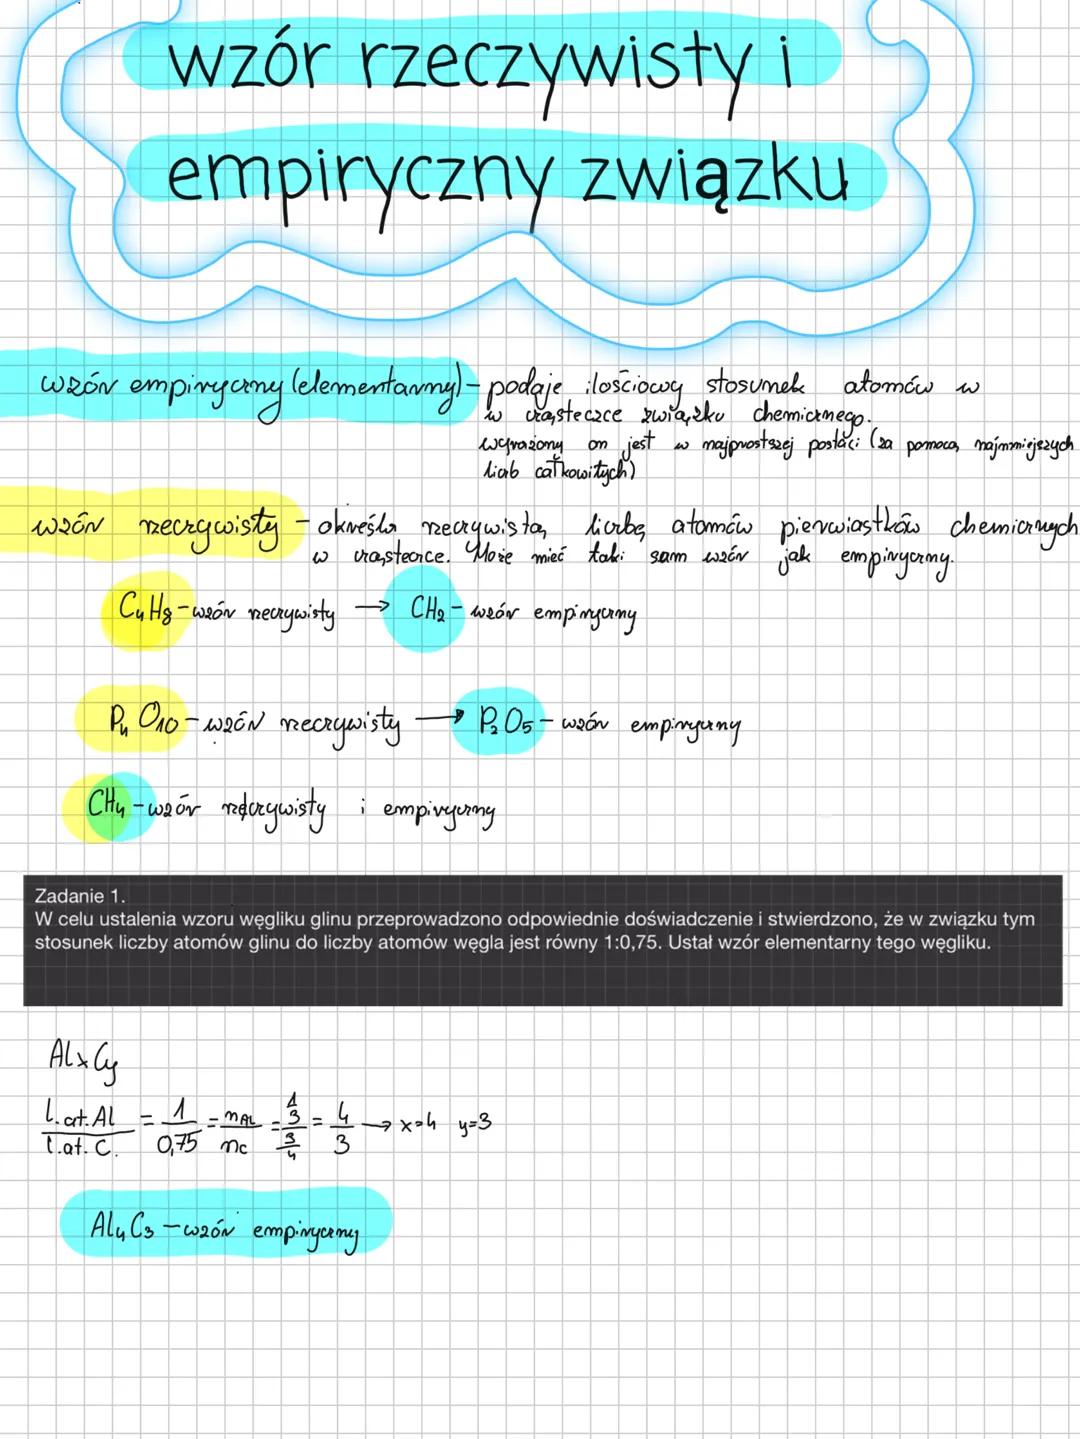 wzór rzeczywisty i
empiryczny związku
wzór empiryczny (elementarny) - podaje ilościowy stosunek atomów w
w cząsteczce związku chemicznego.
wyrażony on jest w najprostszej postaci (za pomocą najmniejszych
liczb całkowitych)
wzór rzeczywisty - określa rzeczywistą liczbę atomów pierwiastków chemicznych
w cząsteczce. Może mieć taki sam wzór jak empiryczny.
C₄H₈ - wzór rzeczywisty → CH₂ - wzór empiryczny
P₄O₁₀ - wzór rzeczywisty → P₂O₅ - wzór empiryczny
CH₄ - wzór rzeczywisty i empiryczny
Zadanie 1.
W celu ustalenia wzoru węgliku glinu przeprowadzono odpowiednie doświadczenie i stwierdzono, że w związku tym
stosunek liczby atomów glinu do liczby atomów węgla jest równy 1:0,75. Ustał wzór elementarny tego węgliku.
AlxCy
l.at.Al / l.at.C. = 1/0,75 = nAl/nC = 1/(3/4) = 4/3 → x=4 y=3
Al₄C₃ - wzór empiryczny